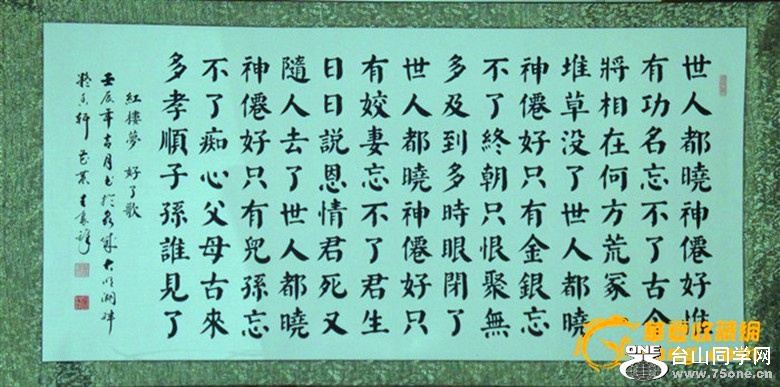 世人都曉神僊好惟
有功名忘不了古今
將相在何方荒冢一
堆草没了世人都曉
神僊好只有金銀忘
不了終朝只恨聚無
多及到多時眼閉了
世人都曉神僊好只
有姣妻忘不了君生
日日説恩情君死又
隨人去了世人都曉
神僊好只有兒孫忘
不了痴心父母古來
多孝順子孫誰見了
紅樓夢 好了歌
壬辰年月书於泉城大明湖畔
華夏收藏網
ONE
台山同学网
www.75one.cn